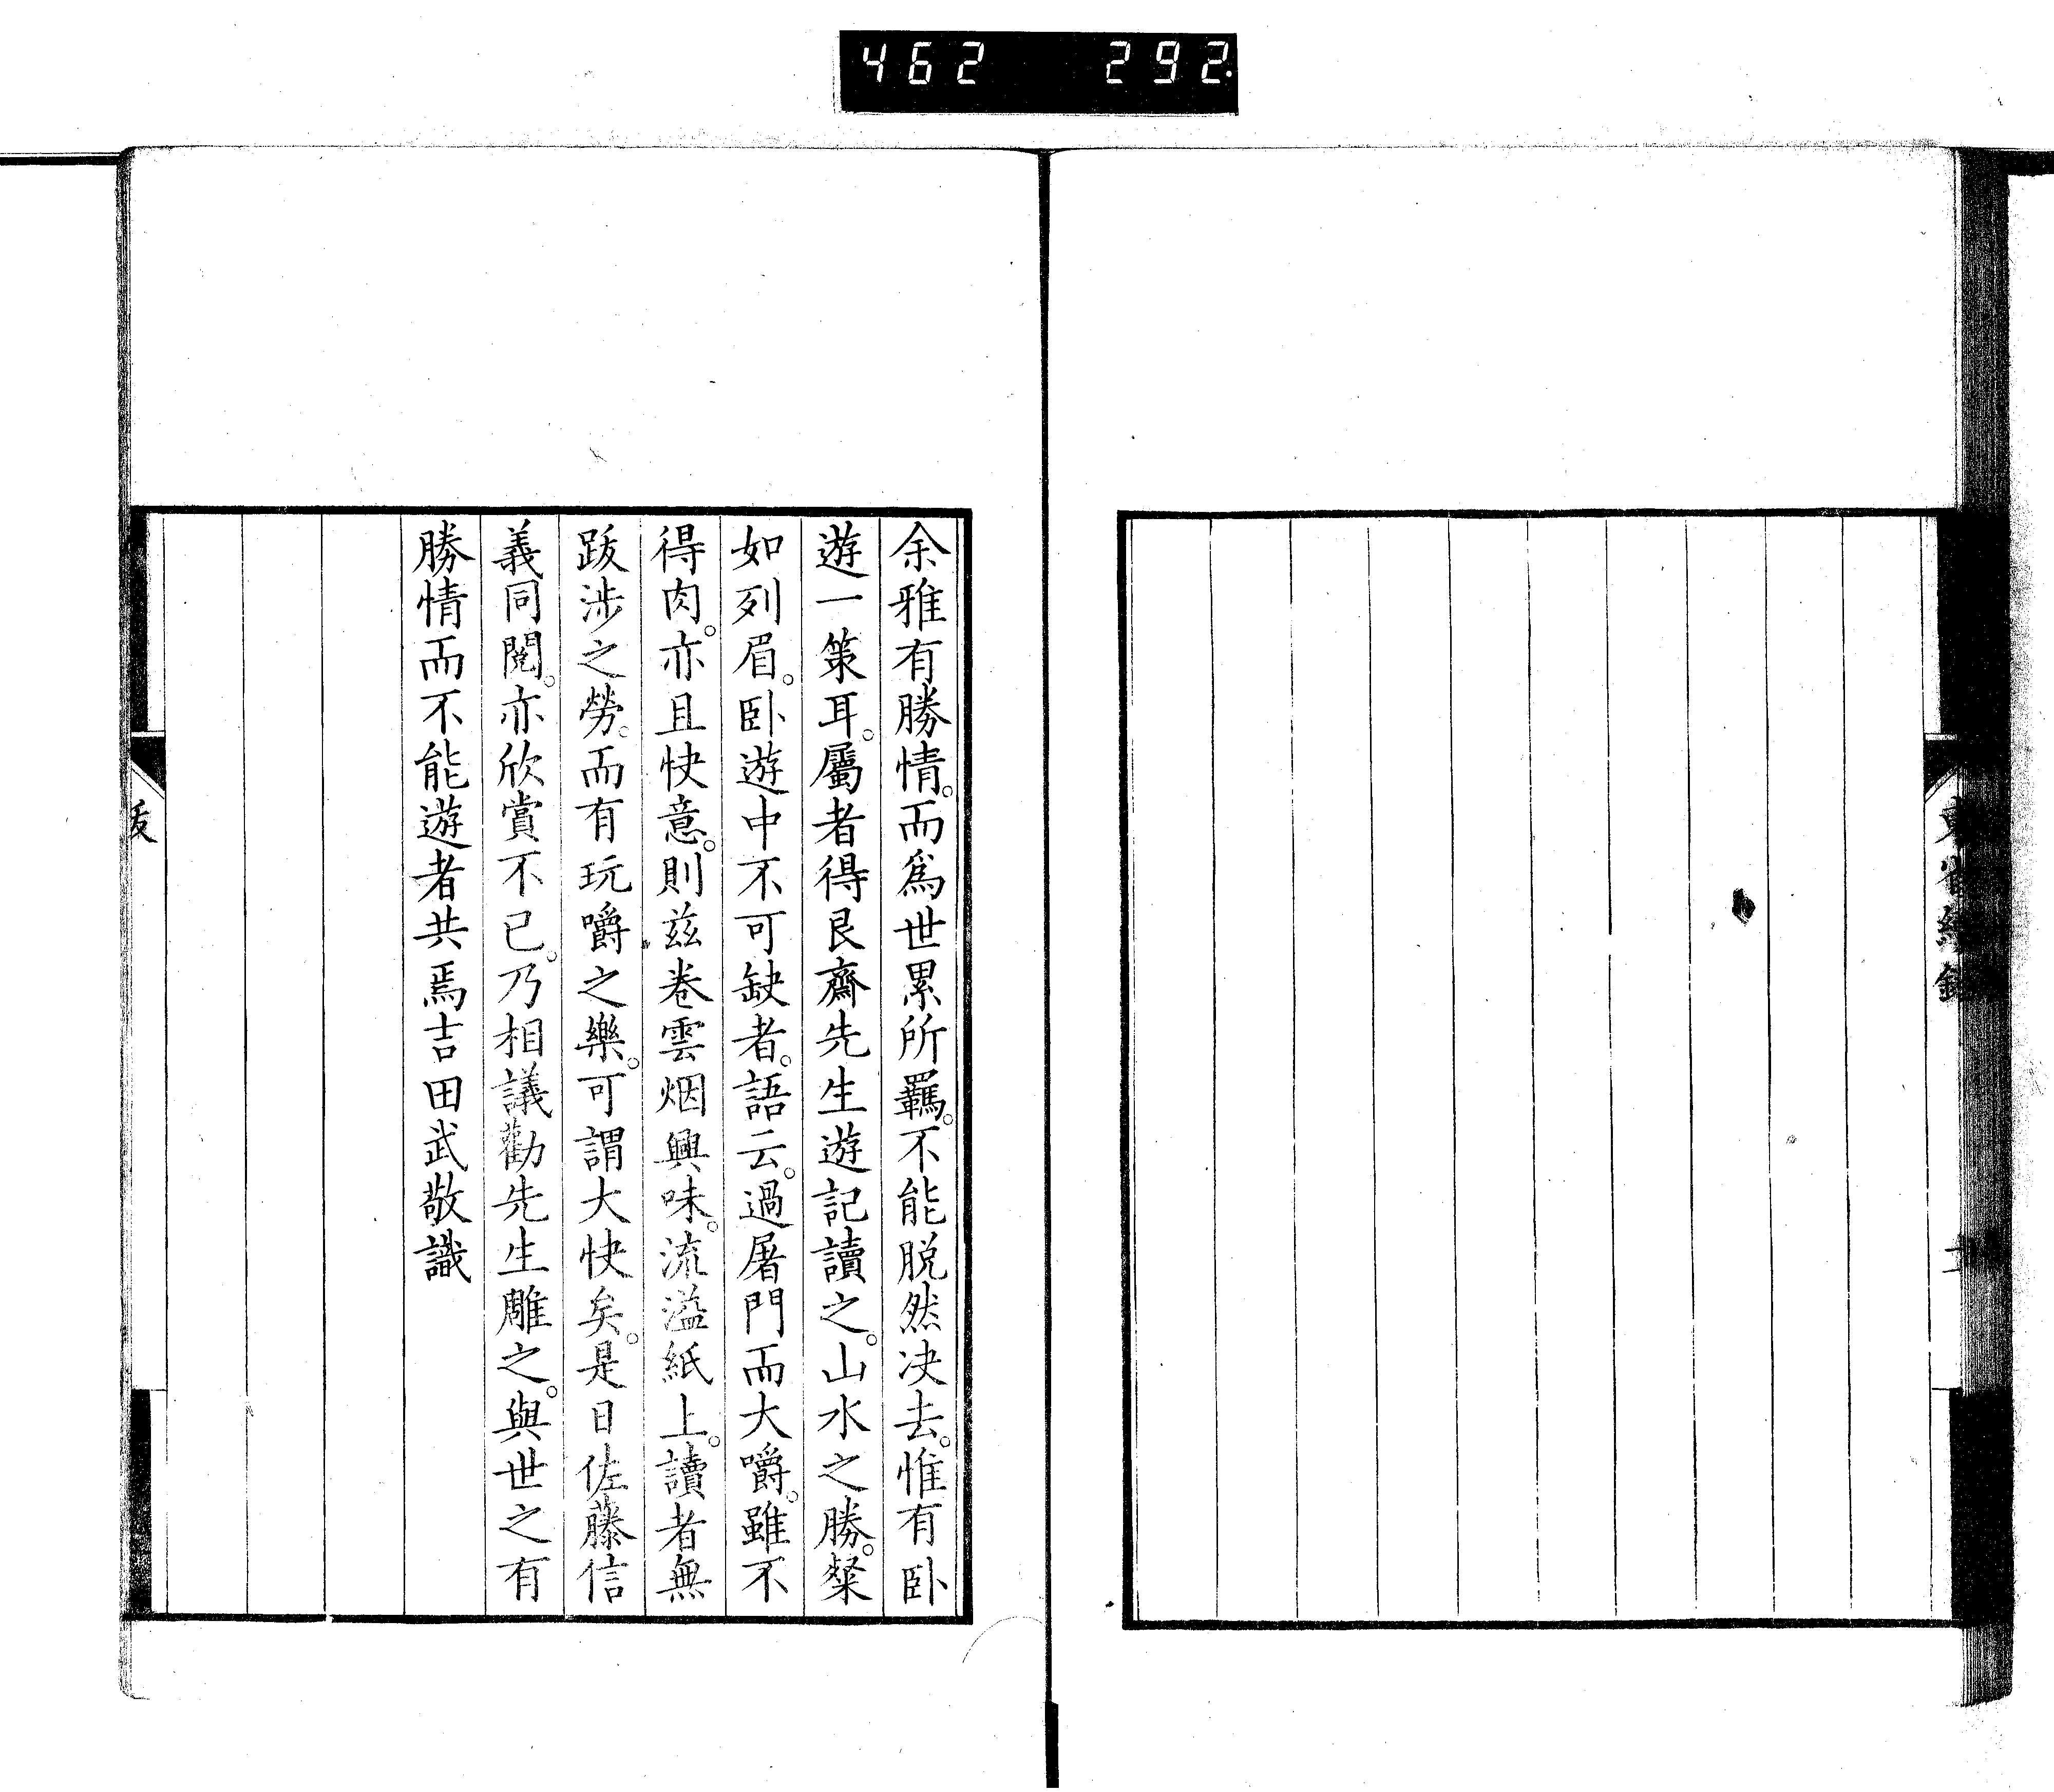 462 292.
余雅有勝情。而爲世累所羈。不能脱然決去。惟有卧
遊一策耳。屬者得艮齋先生遊記讀之。山水之勝。粲
如列眉。卧遊中不可缺者。語云。過屠門而大嚼。雖不
得肉。亦且快意。則兹卷雲烟興味。流溢紙上。讀者無
跋涉之勞。而有玩嚼之樂。可謂大快矣。是日佐藤信
義同閲。亦欣賞不已。乃相議勸先生雕之。與世之有
勝情而不能遊者共焉吉田武敬識